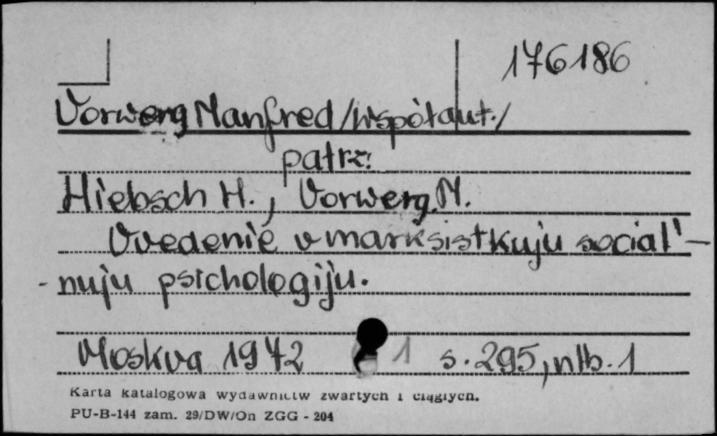 176186
Vorwerg Manfred /współaut./
patrz:
Hiebsch H., Vorwerg M.
Vvedenie v marksistkuju social'-
-nuju psichologiju.
Moskva 1972 1 s. 295, nlb. 1
Karta katalogowa wydawnictw zwartych i ciągłych.
PU-B-144 zam. 29/DW/On ZGG - 204